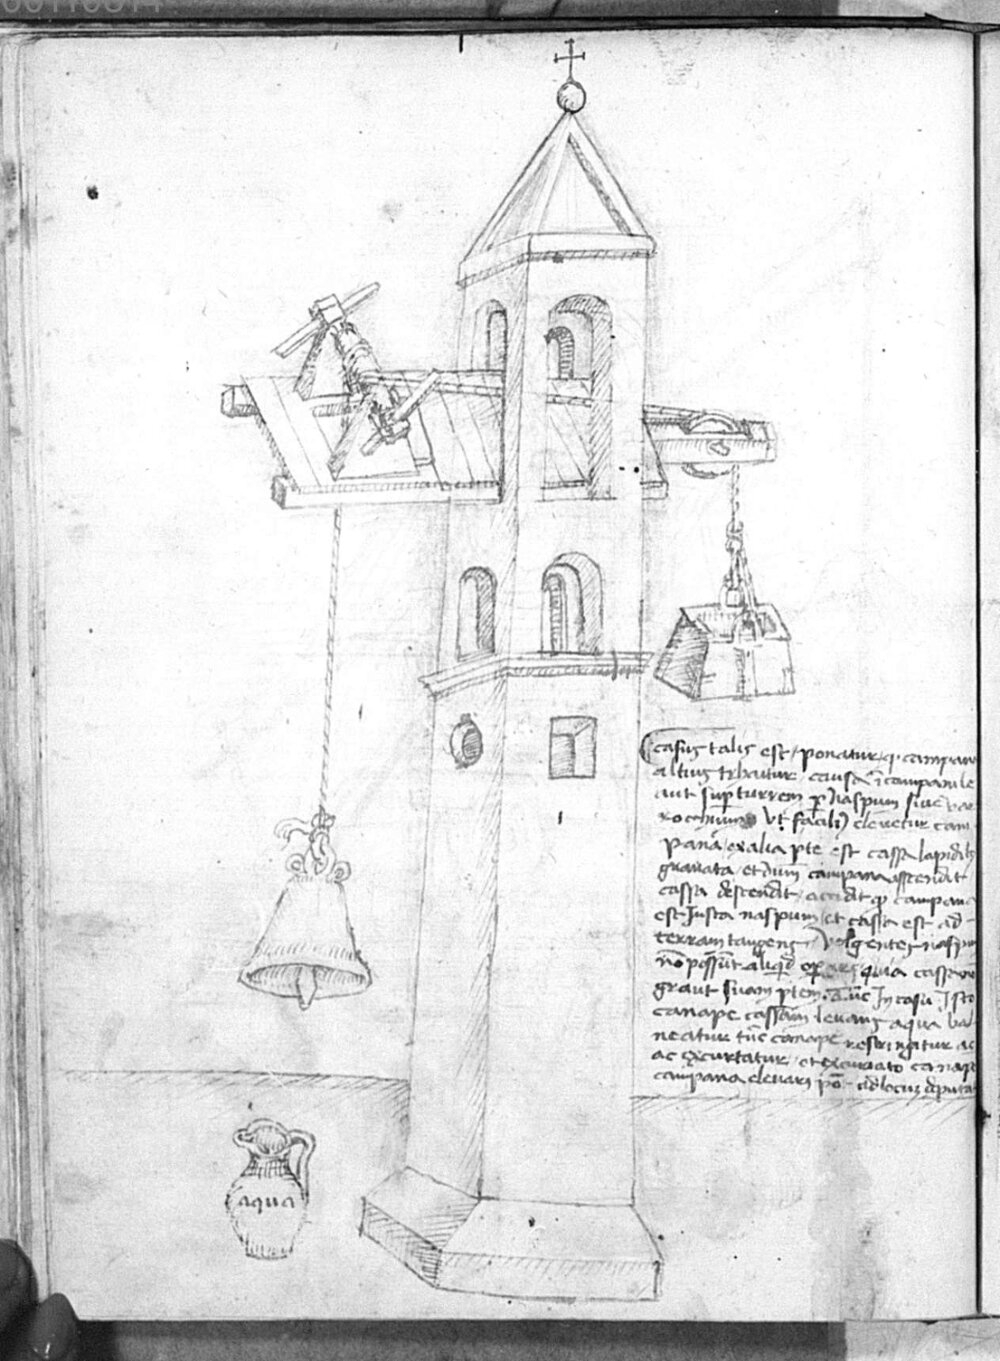 casus talis est / ponatur q campan
altius trhatur causa in campanile
aut sup turrem p naspum siue
ut facili elevetur cam
pana / ex alia pte est cassa lapidib
grauata / et dum campana assendit
cassa descendit / accidit q campana
est Justa naspum / et cassa est ad
terram tangens / volgentes nasp
no possut aliqd quia cassa
graut suam ptem. tuc In casu Isto
canape cassam leuans aqua ba
neatur tuc canape restringatur ac
ac excurtatur / et canape
campana eleuari pot ad locum deputa
aqua